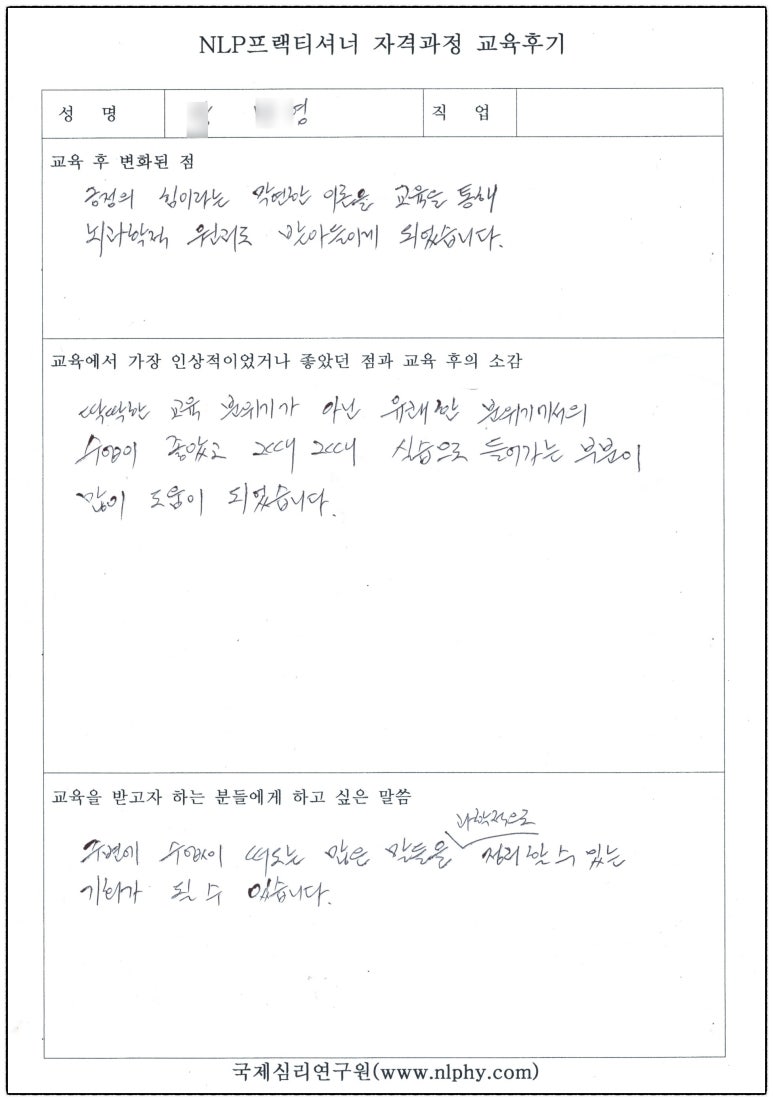 NLP프랙티셔너 자격과정 교육후기
성 명 경 직 업
교육 후 변화된 점
긍정의 힘이라는 막연한 이론을 교육을 통해
뇌과학적 원리로 받아들이게 되었습니다.
교육에서 가장 인상적이었거나 좋았던 점과 교육 후의 소감
딱딱한 교육 분위기가 아닌 유쾌한 분위기에서의
수업이 좋았고 그때 그때 실습으로 들어가는 부분이
많이 도움이 되었습니다.
교육을 받고자 하는 분들에게 하고 싶은 말씀
과학적으로
주변에 수없이 떠도는 많은 말들을 정리할 수 있는
기회가 될 수 있습니다.
국제심리연구원(www.nlphy.com)